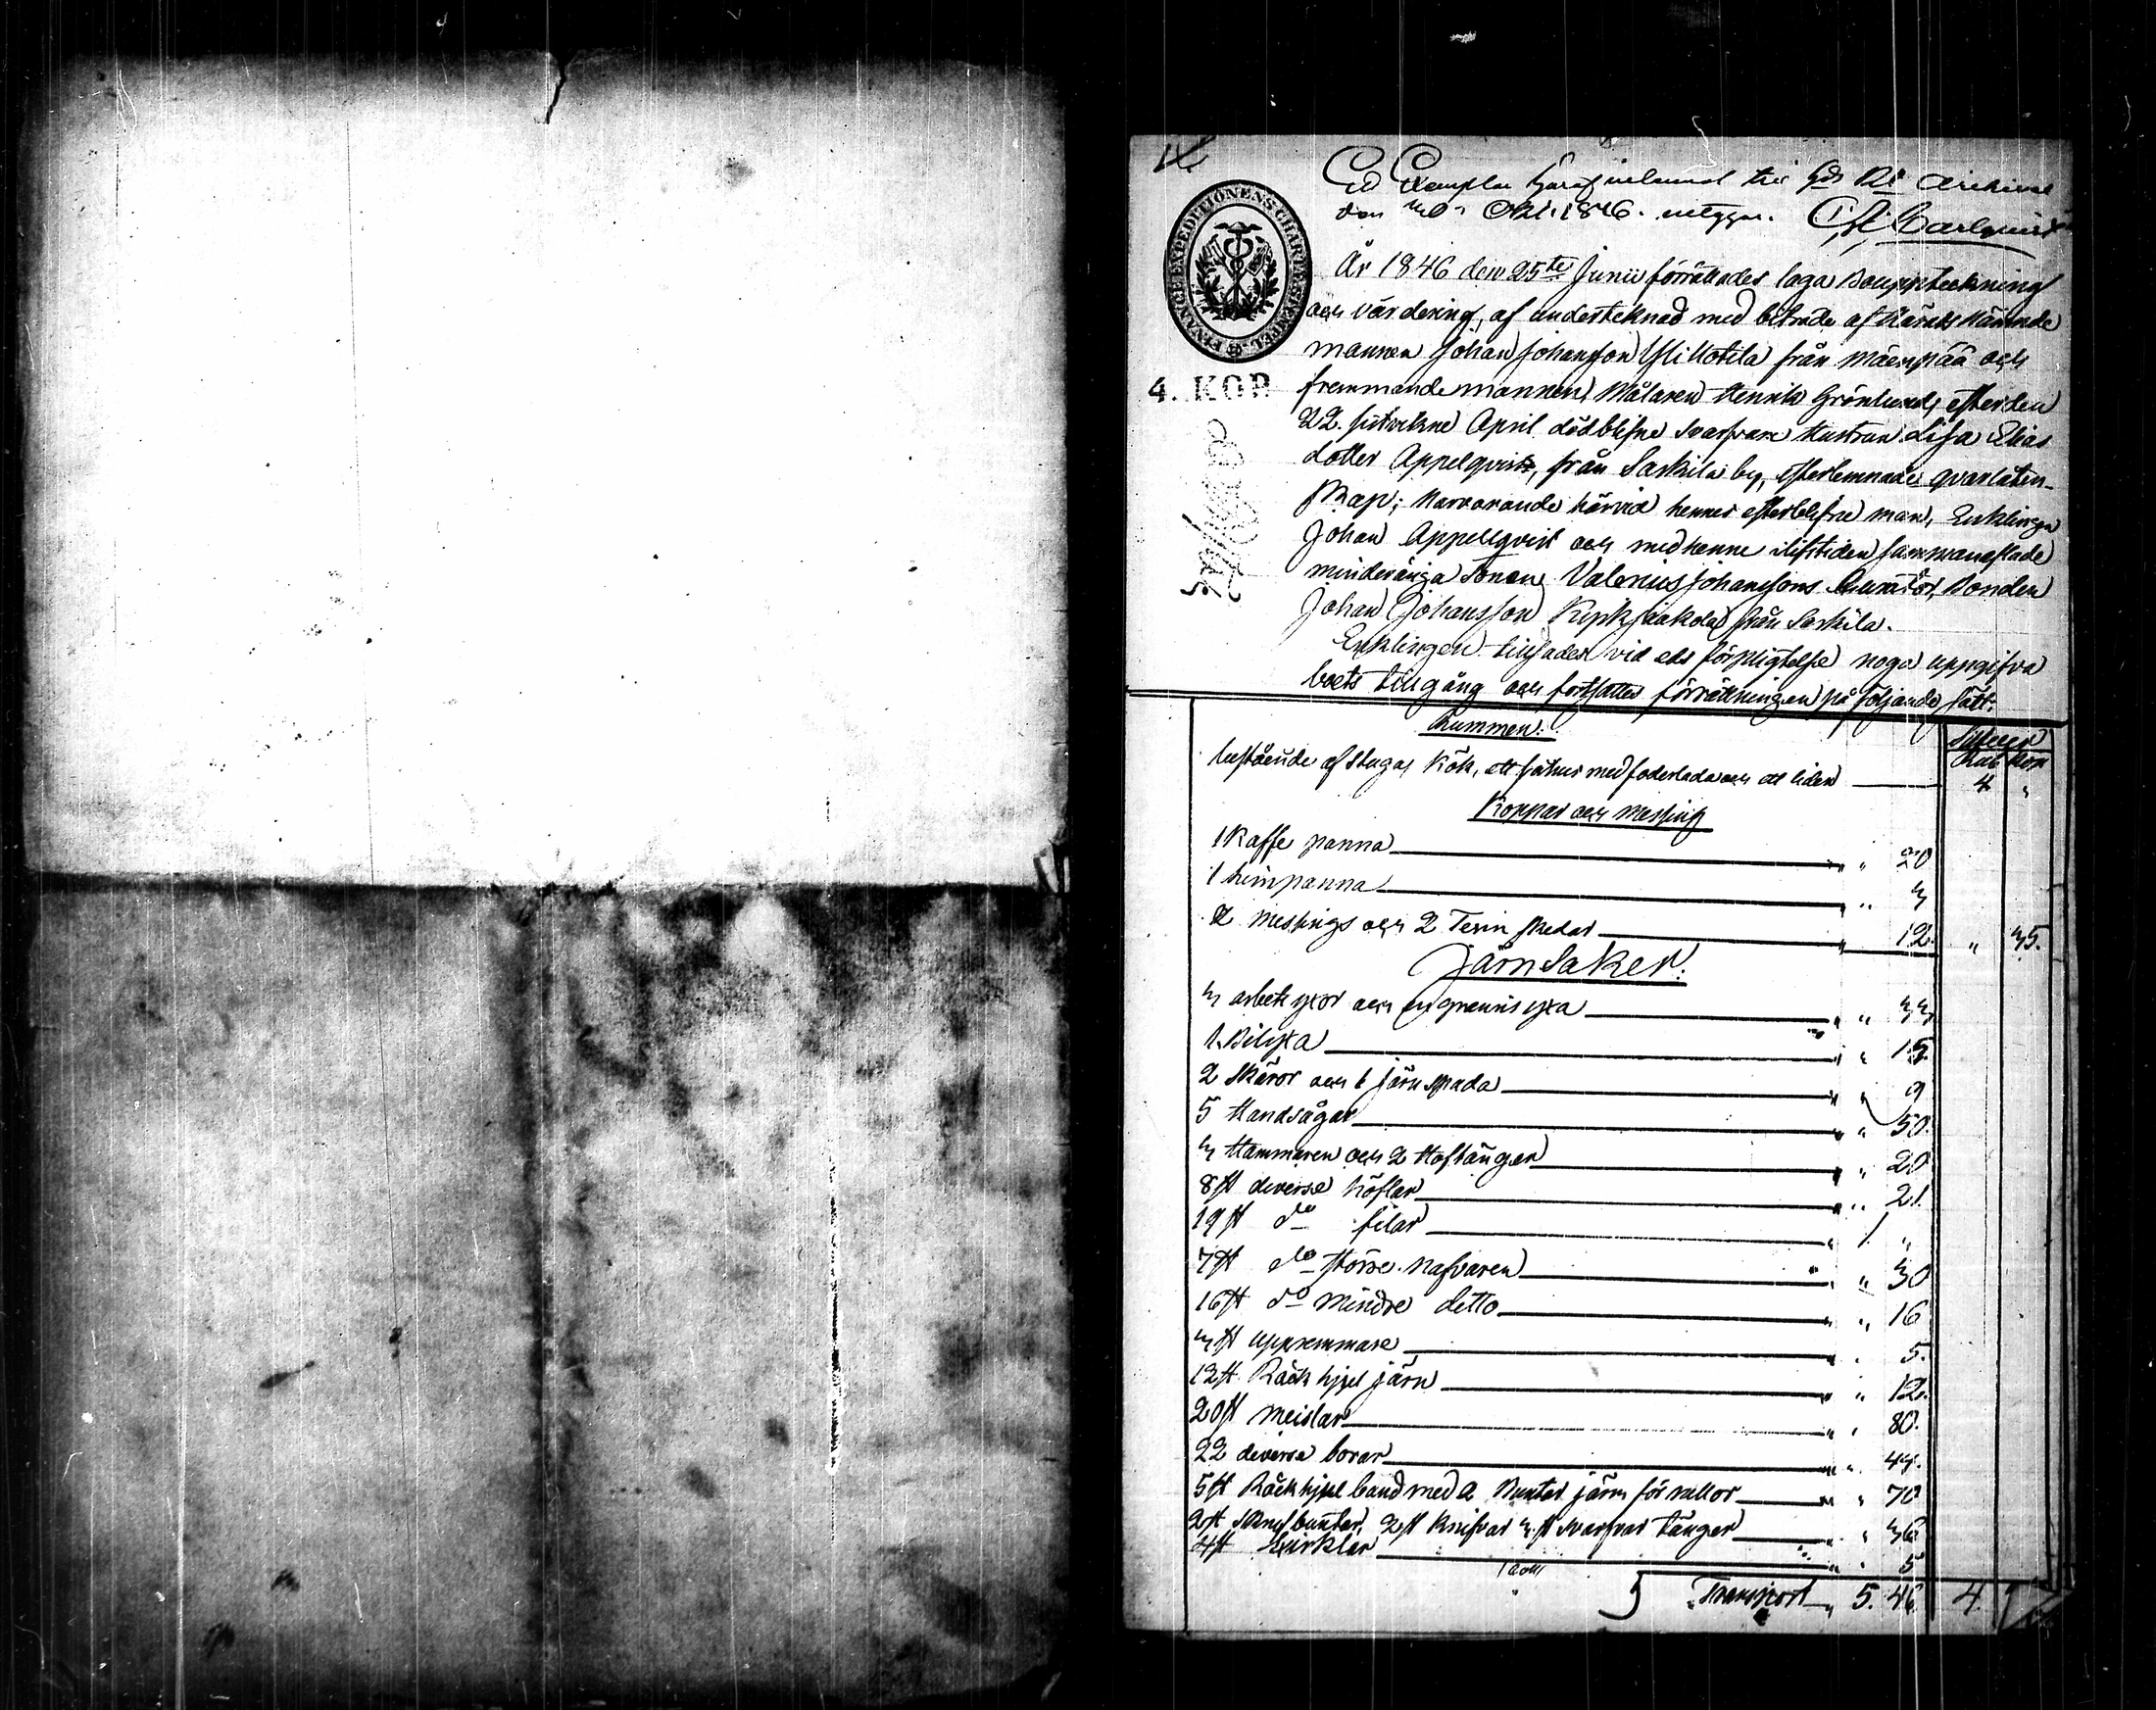 Ett Exemplar häraf inlemnat till Hds Rs archivet
den 30 Okt. 1846. intygar. C. A. Carlquist
FINANCE EXPEDITIONENS CHARTÆ STEMPEL
4. KOP.
År 1846 den 25te Junii förrättades laga Bouppteckning
och värdering, af undertecknad med biträde af Härads Nämnde
mannen Johan Johansson Yli Kotila från Mäenpää och
fremmande mannen, Målaren Henrik Grönlund, efter den
22. sistvekne April dödblifne svarfvare Hustrun Lisa Elias
dotter Appelqvist, från Saskila by, efterlemnade qvarlåten-
skap; Närvarande härvid hennes efterblifne man, Enklingen
Johan Appellqvist och med henne i lifstiden sammanaflade
minderåriga Sonen Valerius Johanssons Curator, Bonden
Johan Johansson Kepkjaakola från Saskila.
Enklingen tillsades vid eds förpligtelse noga uppgifva
boets tillgång och fortsattes förrättningen på följande sätt:
Rummen: Silfver
Rub Kop
bestående af Stuga, Kök, ett fähus med foderlada och ett lider 4 "
Koppar och Messing
1 Kaffe panna " " 20
1 limpanna " " 3
2 Messings och 2 Tenn skedar " 12. " 35.
Järnsaker.
3 arbets yxor och en grennis yxa " " 33
1. Bilyxa " " 15
2 Skäror och 1 järn spada " " 9
5 Handsågar " " 50.
3 Hammaren och 2 Hoftänger " " 20
8 st diverse höflar " " 21.
19 st do filar " 1 "
7 st do större Nafvaren " " 30
16 st do mindre ditto " " 16
3 st uppremmare " " 5.
12 st Räckhjul järn " " 12.
20 st Meislar " " 80.
22 diverse borar " " 44.
5 st Räckhjul band med 2 Buntar järn för rullor " " 70
2 st Skrufbuntar, 2 st Knifvar 3 st Svarfvar tänger " " 36
4 st Zirklar " " 5
Transport " 5. 46 4.